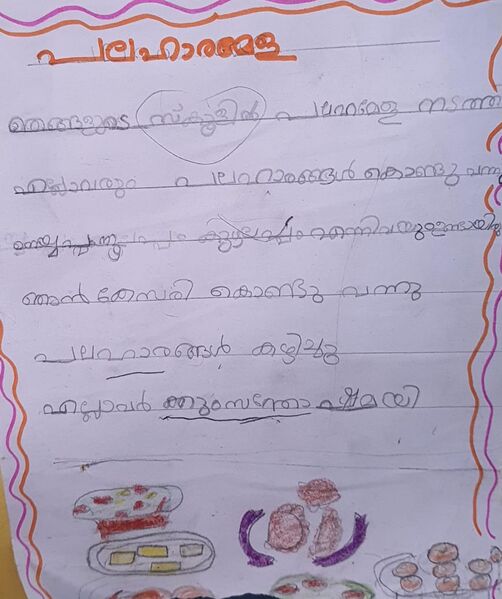 പലഹാരമേള
ഞങ്ങളുടെ സ്കൂളിൽ പലഹാരമേള നടത്തി
എല്ലാവരും പലഹാരങ്ങൾ കൊണ്ടു വന്നു
കുഴലപ്പം എന്നിവയുണ്ടായിരു
ഞാൻ കേസരി കൊണ്ടു വന്നു
പലഹാരങ്ങൾ കഴിച്ചു
എല്ലാവർ ക്കുംസന്തോഷമായി